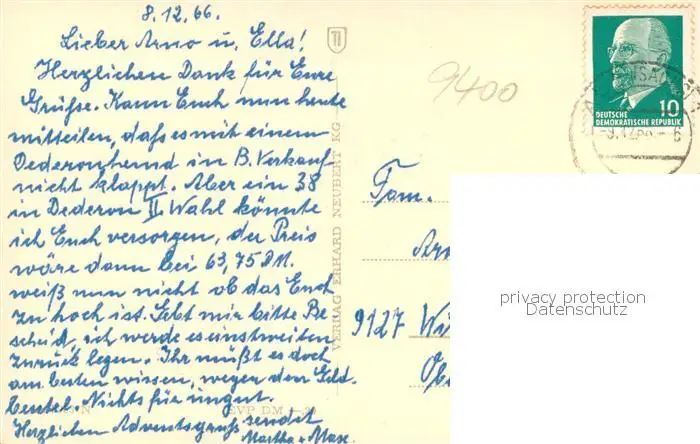 8.12.66.
Lieber Arno u. Ella!
Herzlichen Dank für Eure
Grüße. Kann Euch nun heute
mitteilen, daß es mit einem
Dederonhemd in B. Verkauf
nicht klappt. Aber ein 38
in Dederon II. Wahl könnte
ich Euch versorgen, der Preis
wäre dann bei 63,75 DM.
weiß nun nicht ob das Euch
zu hoch ist. Gebt mir bitte Be
scheid, ich werde es einstweilen
zurück legen. Ihr müßt es doch
am besten wissen, wegen dem Geld-
beutel. Nichts für ungut.
Herzlichen Adventsgruß sendet
Martha + Max.
VERLAG ERHARD NEUBERT KG
EVP DM
9400
DEUTSCHE
DEMOKRATISCHE REPUBLIK
10
Fam.
9127
privacy protection
Datenschutz